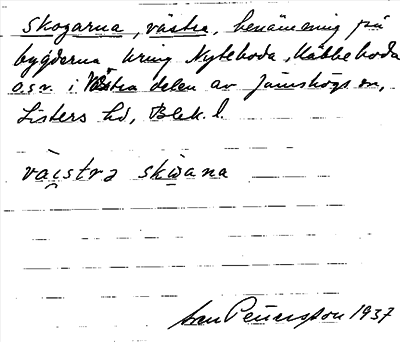 Skogarna, västra, benämning på
bygderna kring Nyteboda, Käbbeboda
o.s.v. i Västra delen av Jämshögs sn,
Listers hd, Blek. l.
västrə skωana
Pettersson 1937